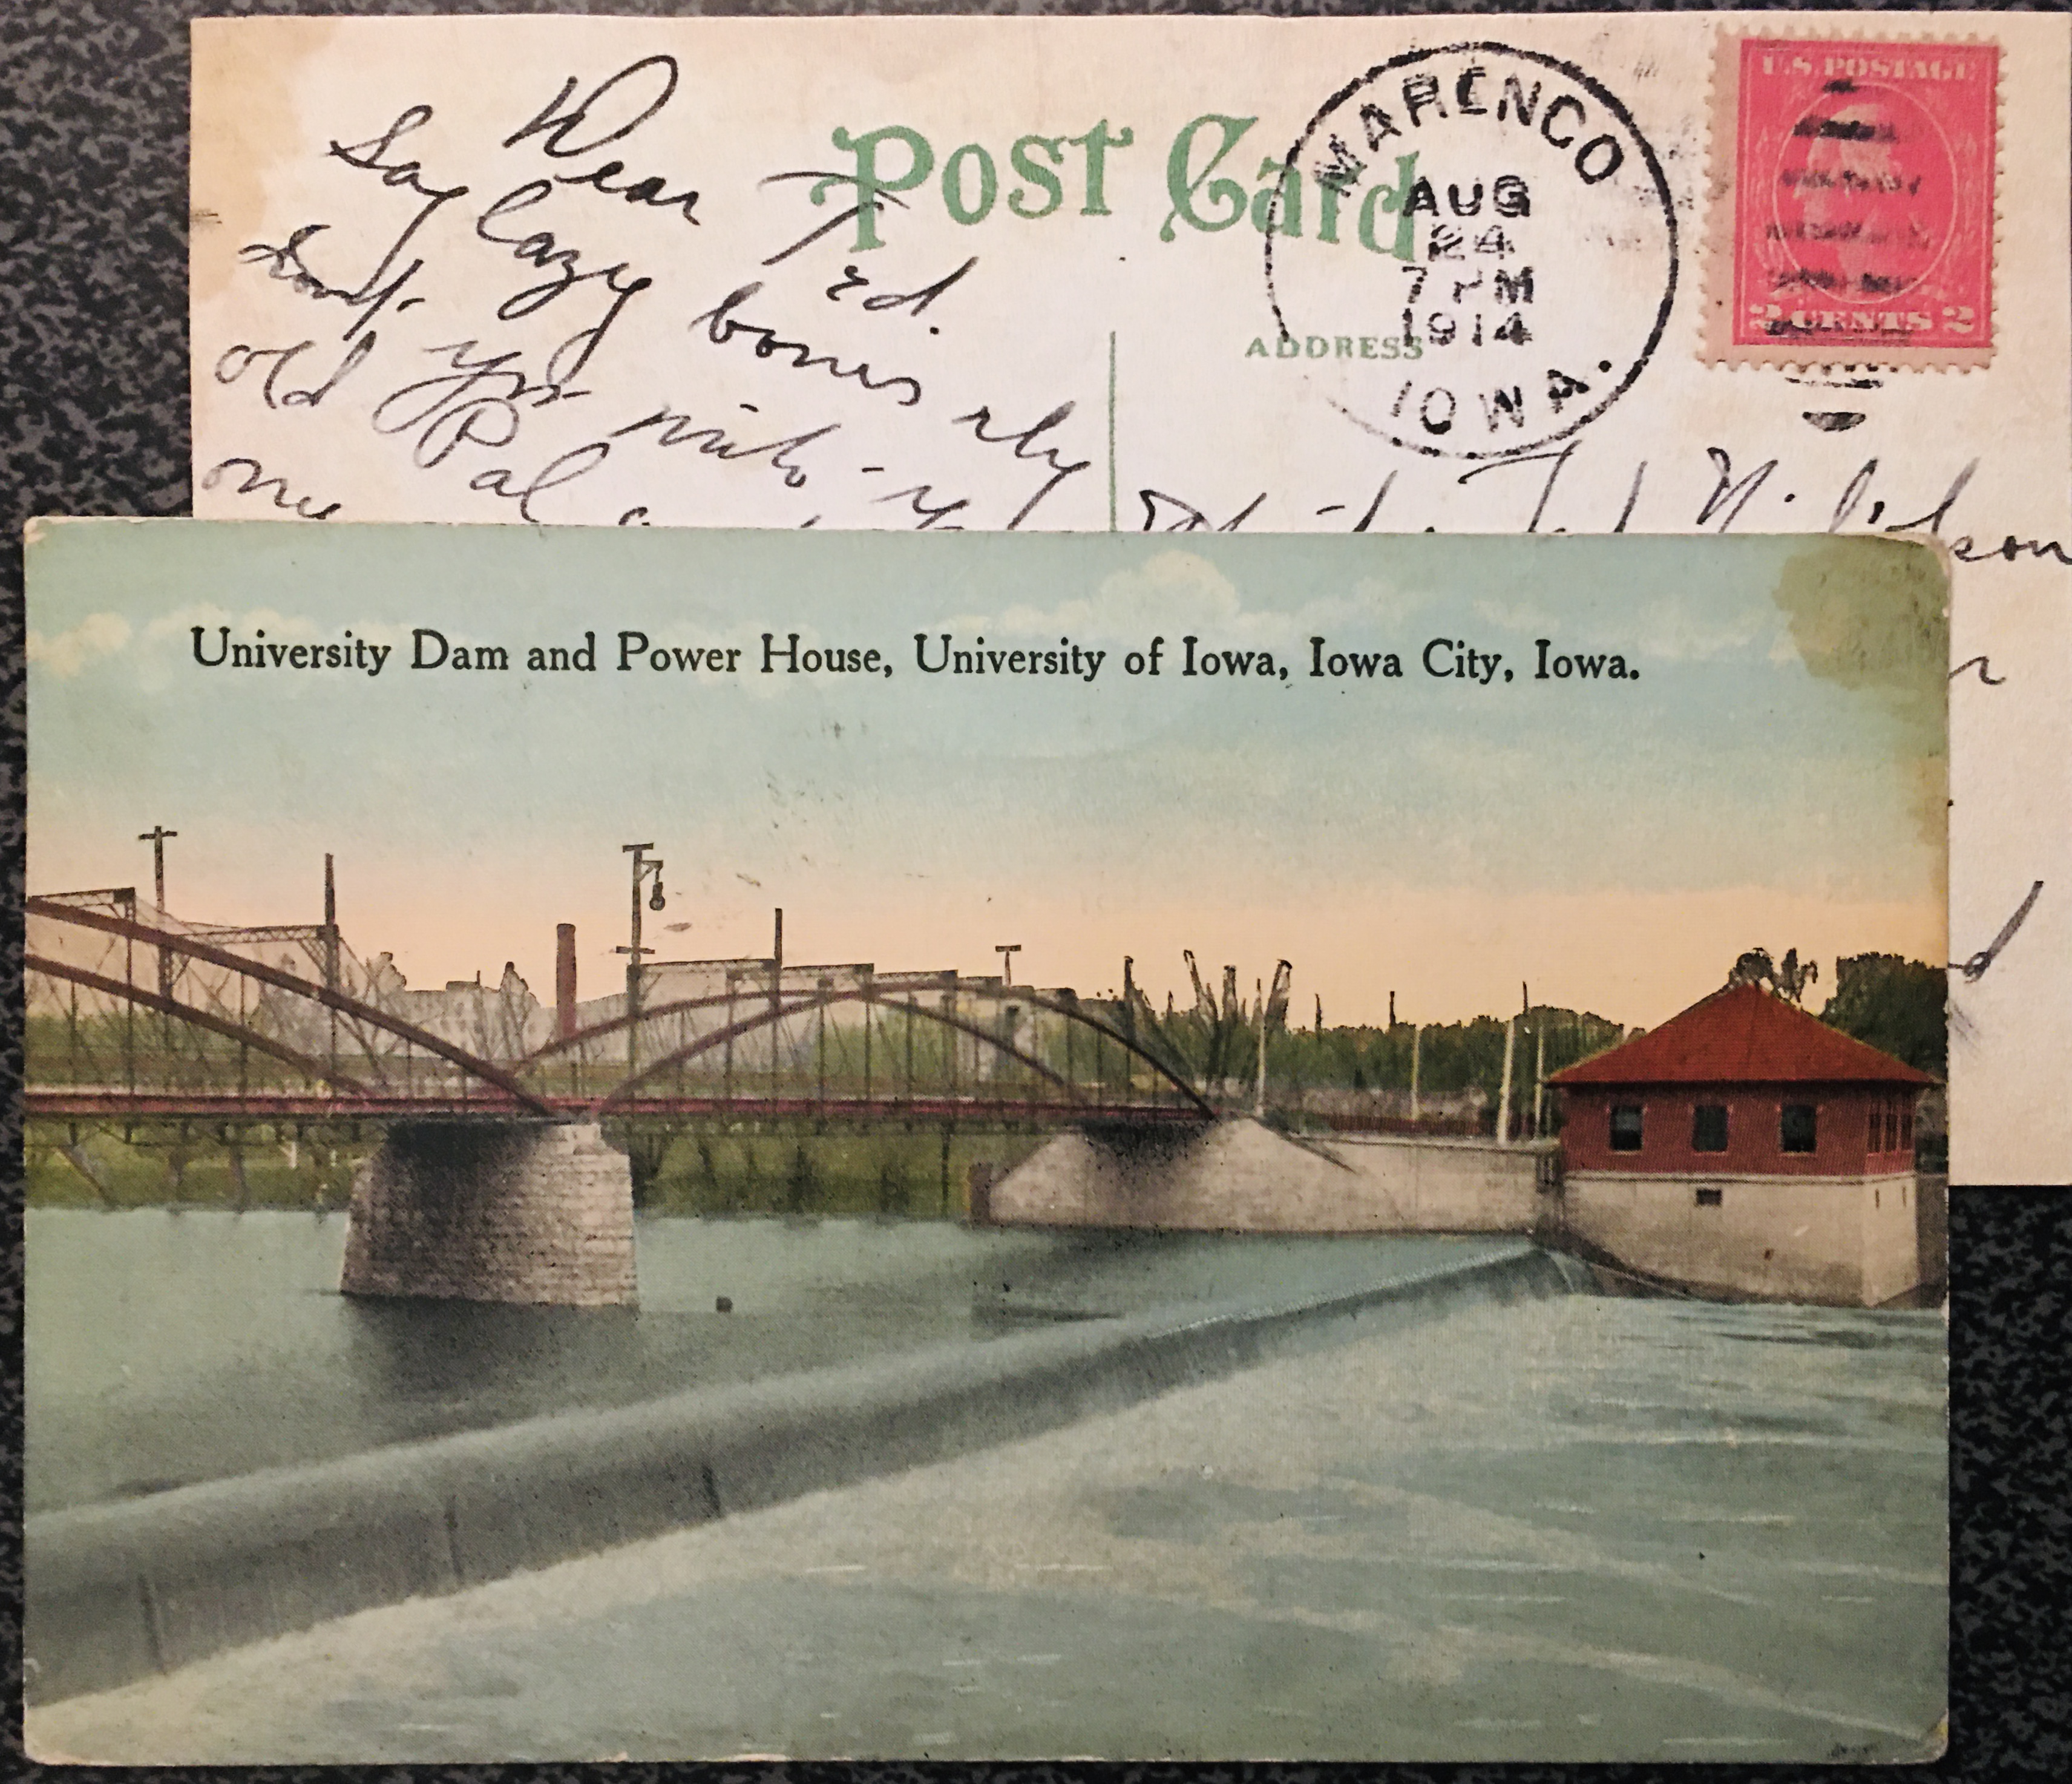 POST CARD
MARENGO
AUG
24
7 PM
1914
IOWA.
U.S. POSTAGE
2 CENTS 2
ADDRESS
Dear Ted.
Say lazy bones why
dont you write - 
old Pal
one
Ted Nicholson
University Dam and Power House, University of Iowa, Iowa City, Iowa.